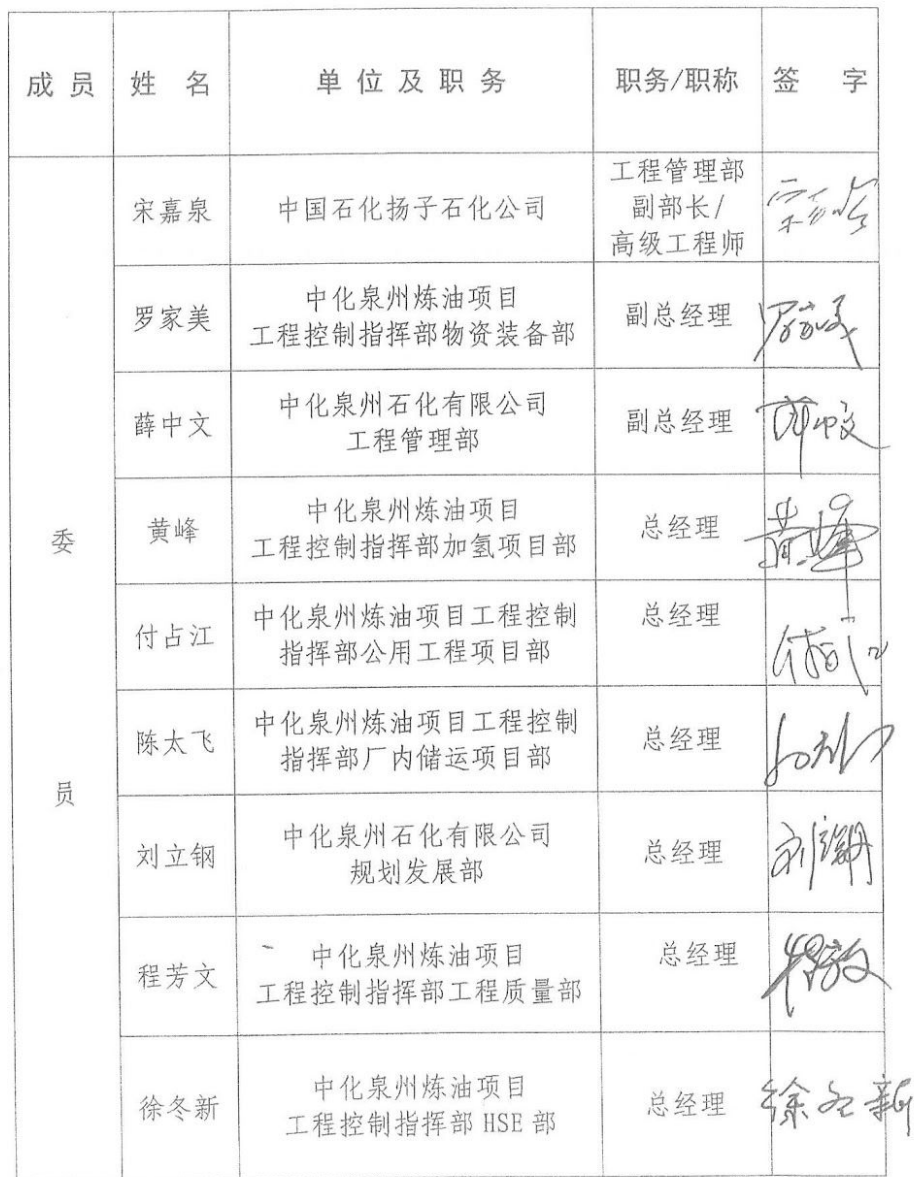 成 员 姓 名 单 位 及 职 务 职务/职称 签 字
委
员
宋嘉泉
中国石化扬子石化公司
工程管理部
副部长/
高级工程师
罗家美
中化泉州炼油项目
工程控制指挥部物资装备部
副总经理
薛中文
中化泉州石化有限公司
工程管理部
副总经理
薛中文
黄峰
中化泉州炼油项目
工程控制指挥部加氢项目部
总经理
黄峰
付占江
中化泉州炼油项目工程控制
指挥部公用工程项目部
总经理
付占江
陈太飞
中化泉州炼油项目工程控制
指挥部厂内储运项目部
总经理
刘立钢
中化泉州石化有限公司
规划发展部
总经理
程芳文
中化泉州炼油项目
工程控制指挥部工程质量部
总经理
徐冬新
中化泉州炼油项目
工程控制指挥部 HSE 部
总经理
徐冬新